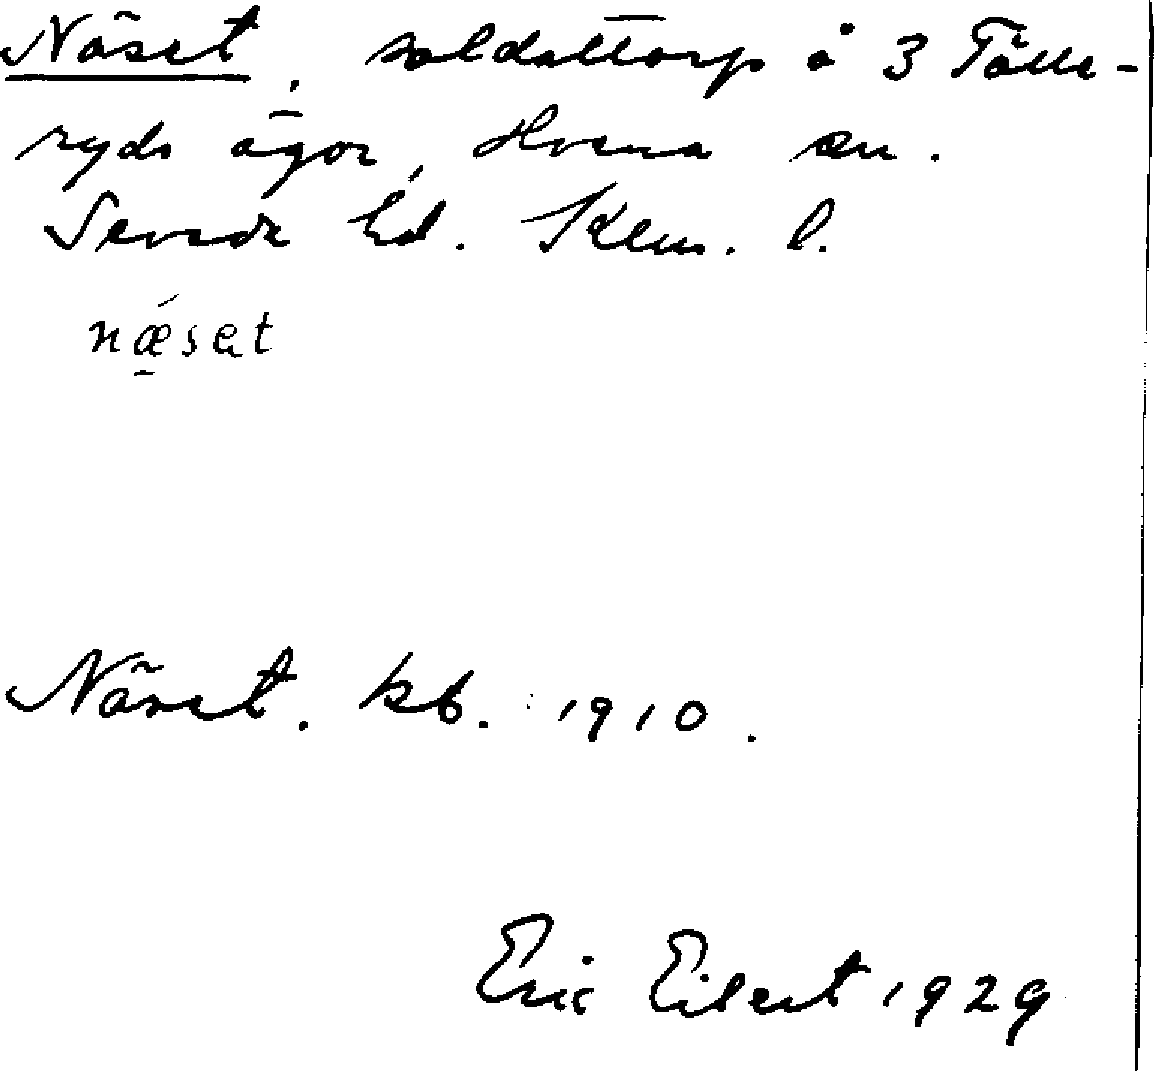 Näset, soldattorp å 3 Tälle-
ryds ägor, Hvena sn.
Sevede hd. Klm. l.
nǽ̱set
Näset. kb. 1910.
Eric Eilert 1929